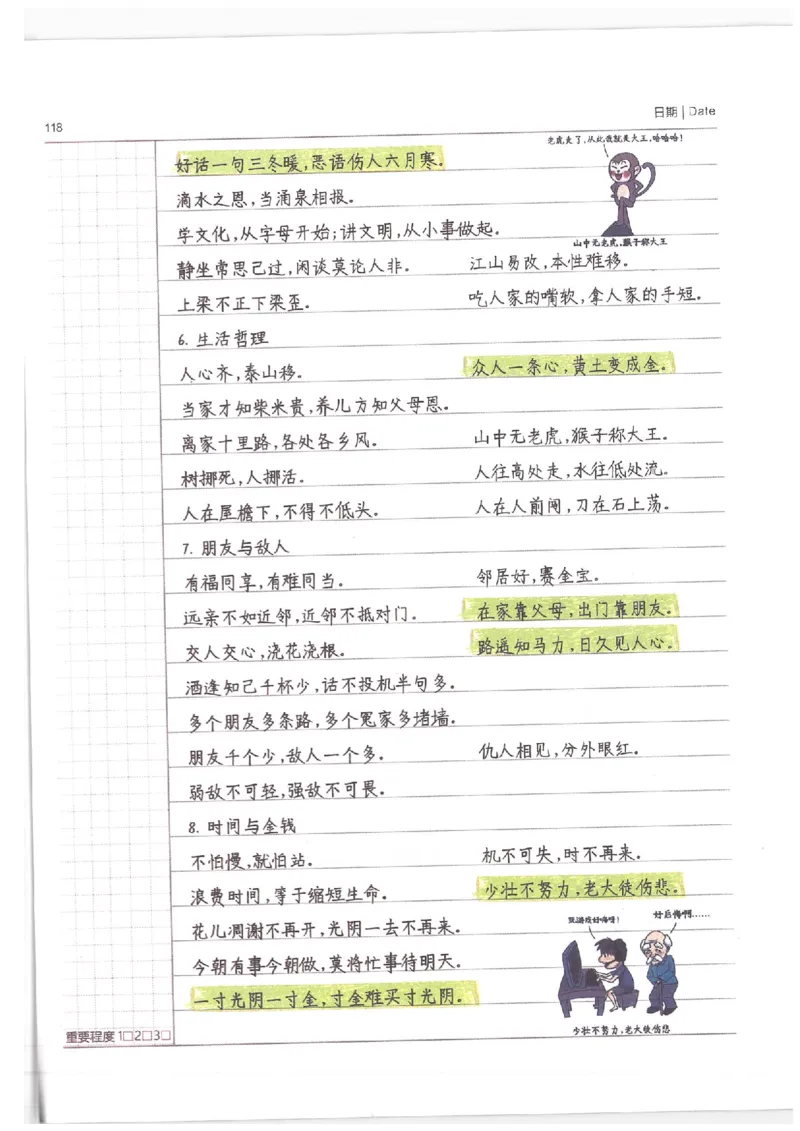 118
日期 | Date
老虎走了,从此我就是大王,哈哈哈!
好话一句三冬暖,恶语伤人六月寒。
滴水之恩,当涌泉相报。
学文化,从字母开始;讲文明,从小事做起。
山中无老虎,猴子称大王
静坐常思己过,闲谈莫论人非。 江山易改,本性难移。
上梁不正下梁歪。 吃人家的嘴软,拿人家的手短。
6. 生活哲理
人心齐,泰山移。 众人一条心,黄土变成金。
当家才知柴米贵,养儿方知父母恩。
离家十里路,各处各乡风。 山中无老虎,猴子称大王。
树挪死,人挪活。 人往高处走,水往低处流。
人在屋檐下,不得不低头。 人在人前闯,刀在石上荡。
7. 朋友与敌人
有福同享,有难同当。 邻居好,赛金宝。
远亲不如近邻,近邻不抵对门。 在家靠父母,出门靠朋友。
交人交心,浇花浇根。 路遥知马力,日久见人心。
酒逢知己千杯少,话不投机半句多。
多个朋友多条路,多个冤家多堵墙。
朋友千个少,敌人一个多。 仇人相见,分外眼红。
弱敌不可轻,强敌不可畏。
8. 时间与金钱
不怕慢,就怕站。 机不可失,时不再来。
浪费时间,等于缩短生命。 少壮不努力,老大徒伤悲。
花儿凋谢不再开,光阴一去不再来。
玩游戏好嗨呀!
好后悔啊……
今朝有事今朝做,莫将忙事待明天。
一寸光阴一寸金,寸金难买寸光阴。
少壮不努力,老大徒伤悲
重要程度 1□2□3□